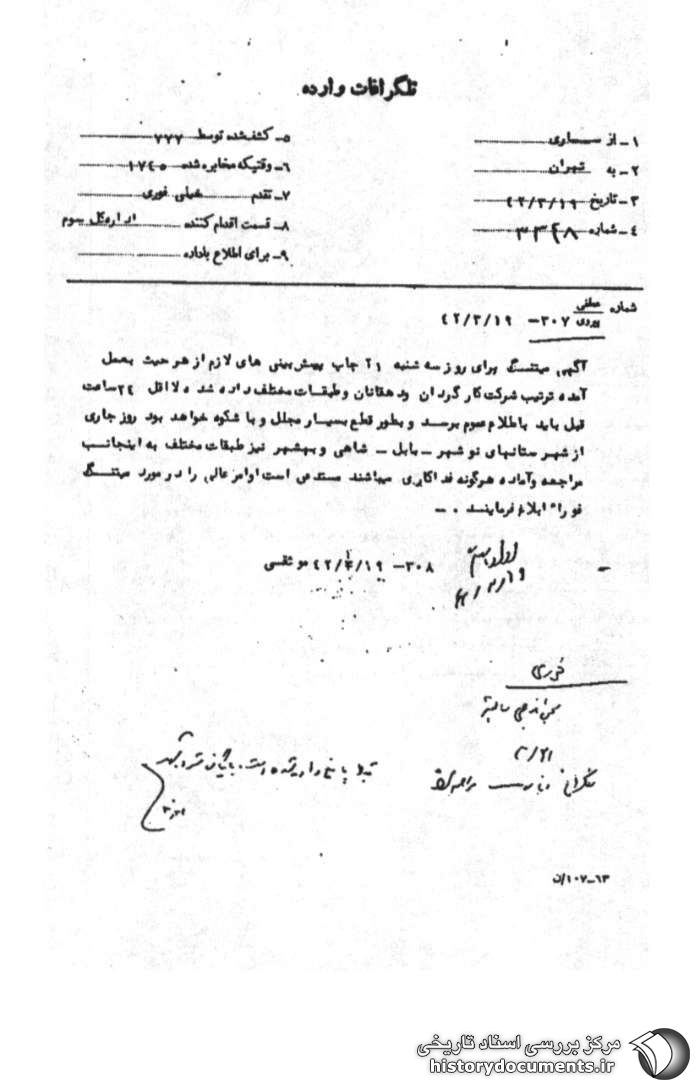 تلگرافات وارده
۱ـ از ساری
۲ـ به تهران
۳ـ تاریخ ۴۲/۳/۱۹
۴ـ شماره ۳۳۴۸
۵ـ کشف‌شده توسط ۷۷۷
۶ـ وقتیکه مخابره شده ۱۷۴۵
۷ـ تقدم خیلی فوری
۸ـ قسمت اقدام کننده اداره‌کل سوم
۹ـ برای اطلاع باداره
شماره عطفی پیروی ۳۰۷ – ۴۲/۳/۱۹
آگهی میتینگ برای روز سه شنبه ۲۱ چاپ پیش بینی های لازم از هر حیث بعمل
آمده ترتیب شرکت کارگران و دهقانان و طبقات مختلف داده شده لااقل ۲۴ ساعت
قبل باید باطلاع عموم برسد و بطور قطع بسیار مجلل و با شکوه خواهد بود روز جاری
از شهرستانهای نوشهر ـ بابل ـ شاهی و بهشهر نیز طبقات مختلف به اینجانب
مراجعه و آماده هرگونه فداکاری میباشند مستدعی است اوامر عالی را در مورد میتینگ
فورا" ابلاغ فرمایند . ـ
۳۰۸ – ۴۲/۳/۱۹ موثقی
۶۳ـ۱۰۷/ن
مرکز بررسی اسناد تاریخی
historydocuments.ir